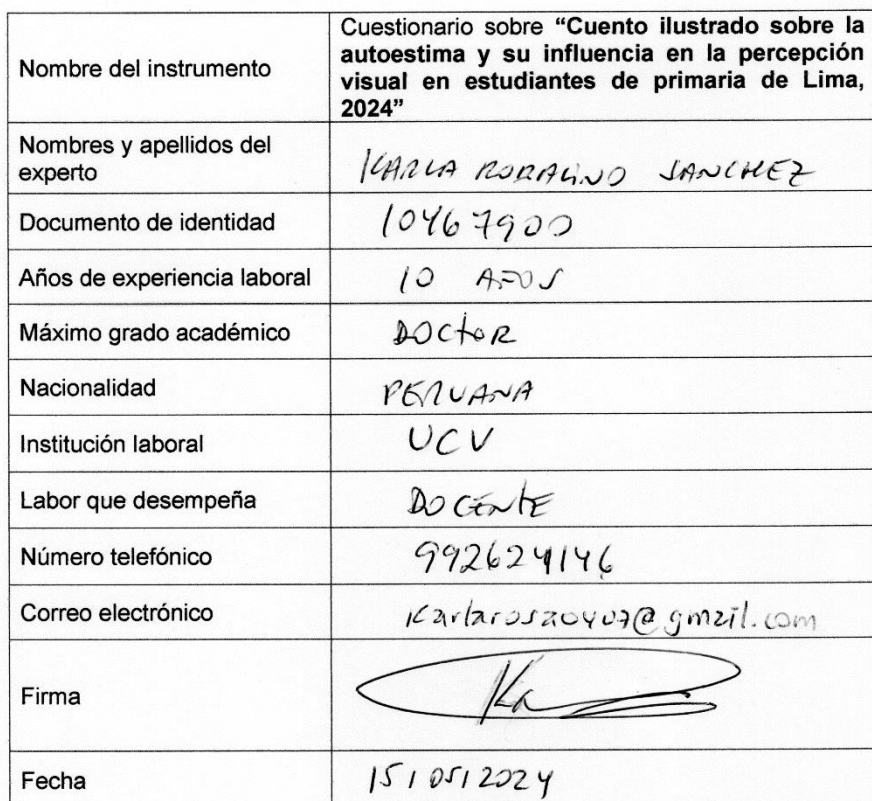 Nombre del instrumento
Cuestionario sobre “Cuento ilustrado sobre la
autoestima y su influencia en la percepción
visual en estudiantes de primaria de Lima,
2024”
Nombres y apellidos del
experto
KARLA ROBALINO SANCHEZ
Documento de identidad
10467900
Años de experiencia laboral
10 AÑOS
Máximo grado académico
DOCtoR
Nacionalidad
PERUANA
Institución laboral
UCV
Labor que desempeña
DOCENTE
Número telefónico
992624146
Correo electrónico
Karlarosa0407@gmail.com
Firma
Ka
Fecha
15/05/2024